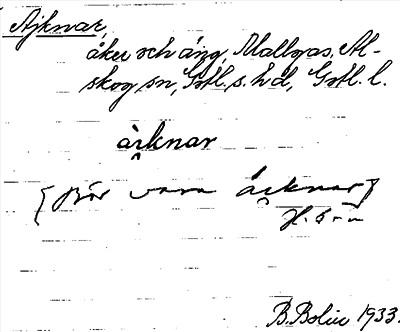 Ajknar,
åker och äng, Mallgas, Al-
skog sn, Gotl. s. hd, Gotl. l.
àiknar
{Bör vara áiknar}
B. Bolin 1933.